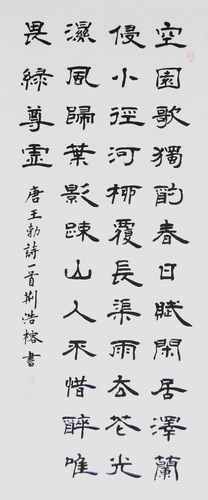 空園歌獨酌春日賦閑居澤蘭
侵小徑河柳覆長渠雨去花光
濕風歸葉影疎山人不惜醉唯
畏綠尊虛
唐王勃詩一首荆浩榕書